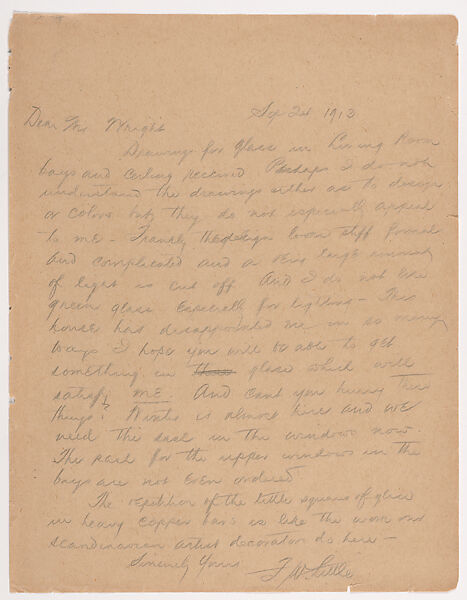 Sep 2d 1913
Dear Mr Wright
Drawings for glass in Living Room
bays and ceiling received. Perhaps I do not
understand the drawings either as to design
or colors but they do not especially appeal
to me - Frankly the design looks stiff formal
and complicated and a very large amount
of light is cut off And I do not like
green glass especially for lighting - This
house has disappointed me in so many
ways I hope you will be able to get
something in glass which will
satisfy ME. And cant you hurry these
things? Winter is almost here and we
need this in the windows now
The for the upper windows in the
bays are not even ordered
The repetition of the little squares of glass
in heavy copper bars is like the work our
Scandinavian artist decorators do here -
Sincerely Yours
F W Little